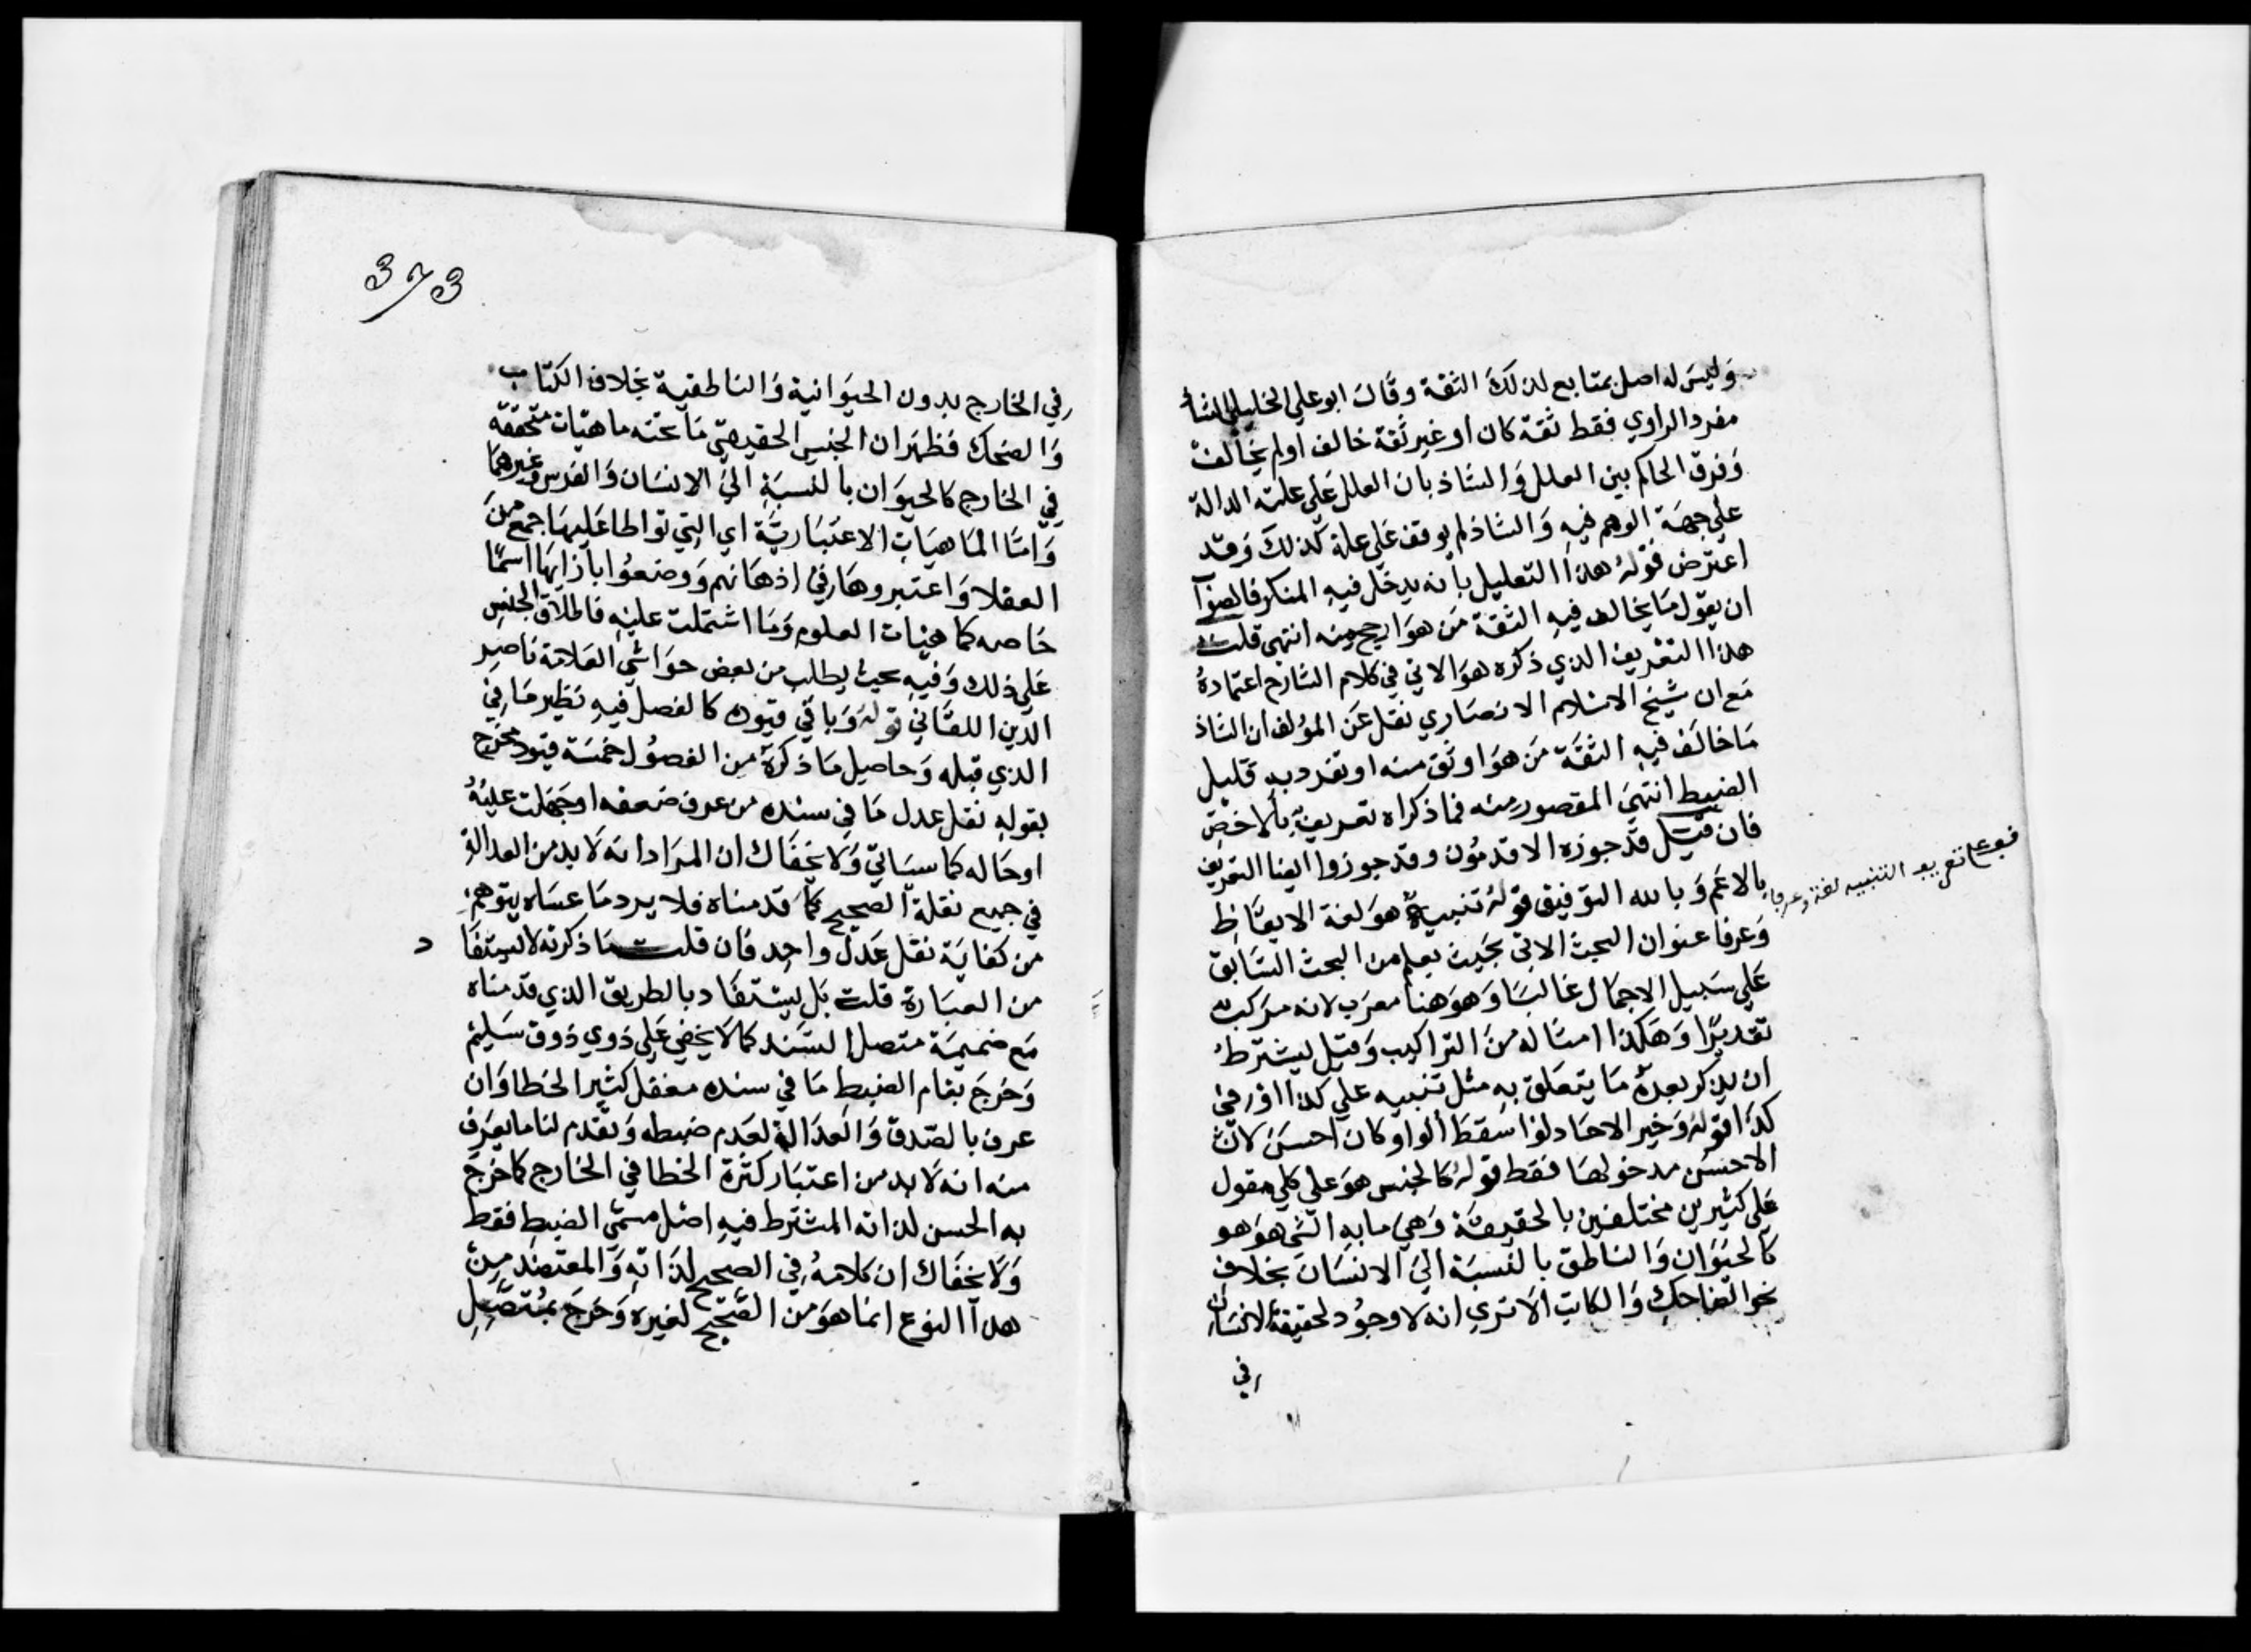 وليس له اصل بمتابع لذلك الثقة وقال ابو علي الخليلي الشاذ
مفرد الراوي فقط ثقة كان او غير ثقة خالف اولم يخالف
وفرق الحاكم بين المعلل والشاذ بان المعلل على علته الدالة
على جهة الوهم فيه والشاذ لم يوقف على علة كذلك وقد
اعترض قوله هذا التعليل بانه يدخل فيه المنكر فالصواب
ان يقول ما يخالف فيه الثقة من هو ارجح منه انتهى قلت
هذا التعريف الذي ذكره هو الاتي في كلام الشارح اعتماده
مع ان شيخ الاسلام الانصاري نقل عن المؤلف ان الشاذ
ما خالف فيه الثقة من هو اوثق منه او تفرد به قليل
الضبط انتهى المقصود منه فما ذكراه تعريف بالاخص
فان قيل قد جوزه الاقدمون وقد جوزوا ايضا التعريف
بالاعم وبالله التوفيق قوله تنبيه هو لغة الايقاظ
وعرفا عنوان البحث الاتي بحيث يعلم من البحث السابق
على سبيل الاجمال غالبا وهو هنا معرب لانه مركب
تقديرا وهكذا امثاله من التراكيب وقيل يشترط
ان يذكر بعده ما يتعلق به مثل تنبيه على كذا او في
كذا قوله وخبر الاحاد لوا سقط الواو كان احسن لان
الاحسن مدخولها فقط قوله كالجنس هو على كلي مقول
على كثيرين مختلفين بالحقيقة وهي ما به الشي هو هو
كالحيوان والناطق بالنسبة الى الانسان بخلاف
نحو الضاحك والكاتب الا ترى انه لا وجود لحقيقة الانسان
في
تعريف التنبيه لغة وعرفا
373
في الخارج بدون الحيوانية والناطقية بخلاف الكتاب
والضحك فظهر ان الجنس الحقيقي ما تحته ماهيات متحققة
في الخارج كالحيوان بالنسبة الى الانسان والفرس وغيرهما
واما الماهيات الاعتبارية اي التي تواطا عليها جمع من
العقلا واعتبروها في اذهانهم ووضعوا بازايها اسما
خاصه كماهيات العلوم وما اشتملت عليه فاطلاق الجنس
على ذلك وفيه بحث يطلب من بعض حواشي العلامة ناصر
الدين اللقاني قوله وباقي قيوده كالفصل فيه نظير ما في
الذي قبله وحاصل ما ذكره من الفصول خمسة قيود مخرج
بقوله نقل عدل ما في سنده من عرف ضعفه او جهلت عليه
او حاله كما سياتي ولا يخفاك ان المراد انه لا بد من العدالة
في جميع نقلة الصحيح كما قدمناه فلا يرد ما عساه يتوهم
من كفاية نقل عدل واحد فان قلت ما ذكرته لا يستفا د
من العبارة قلت بل يستفاد بالطريق الذي قدمناه
مع ضميمة متصل السند كما لا يخفي على ذوي ذوق سليم
وخرج بتمام الضبط ما في سنده مغفل كثير الخطا وان
عرف بالصدق والعدالة لعدم ضبطه وتقدم لنا ما يعرف
منه انه لا بد من اعتبار كثرة الخطا في الخارج كما خرج
به الحسن لذاته المشترط فيه اصل مسمى الضبط فقط
ولا يخفاك ان كلامه في الصحيح لذاته والمعتضد من
هذا النوع انما هو من الصحيح لغيره وخرج بمتصل